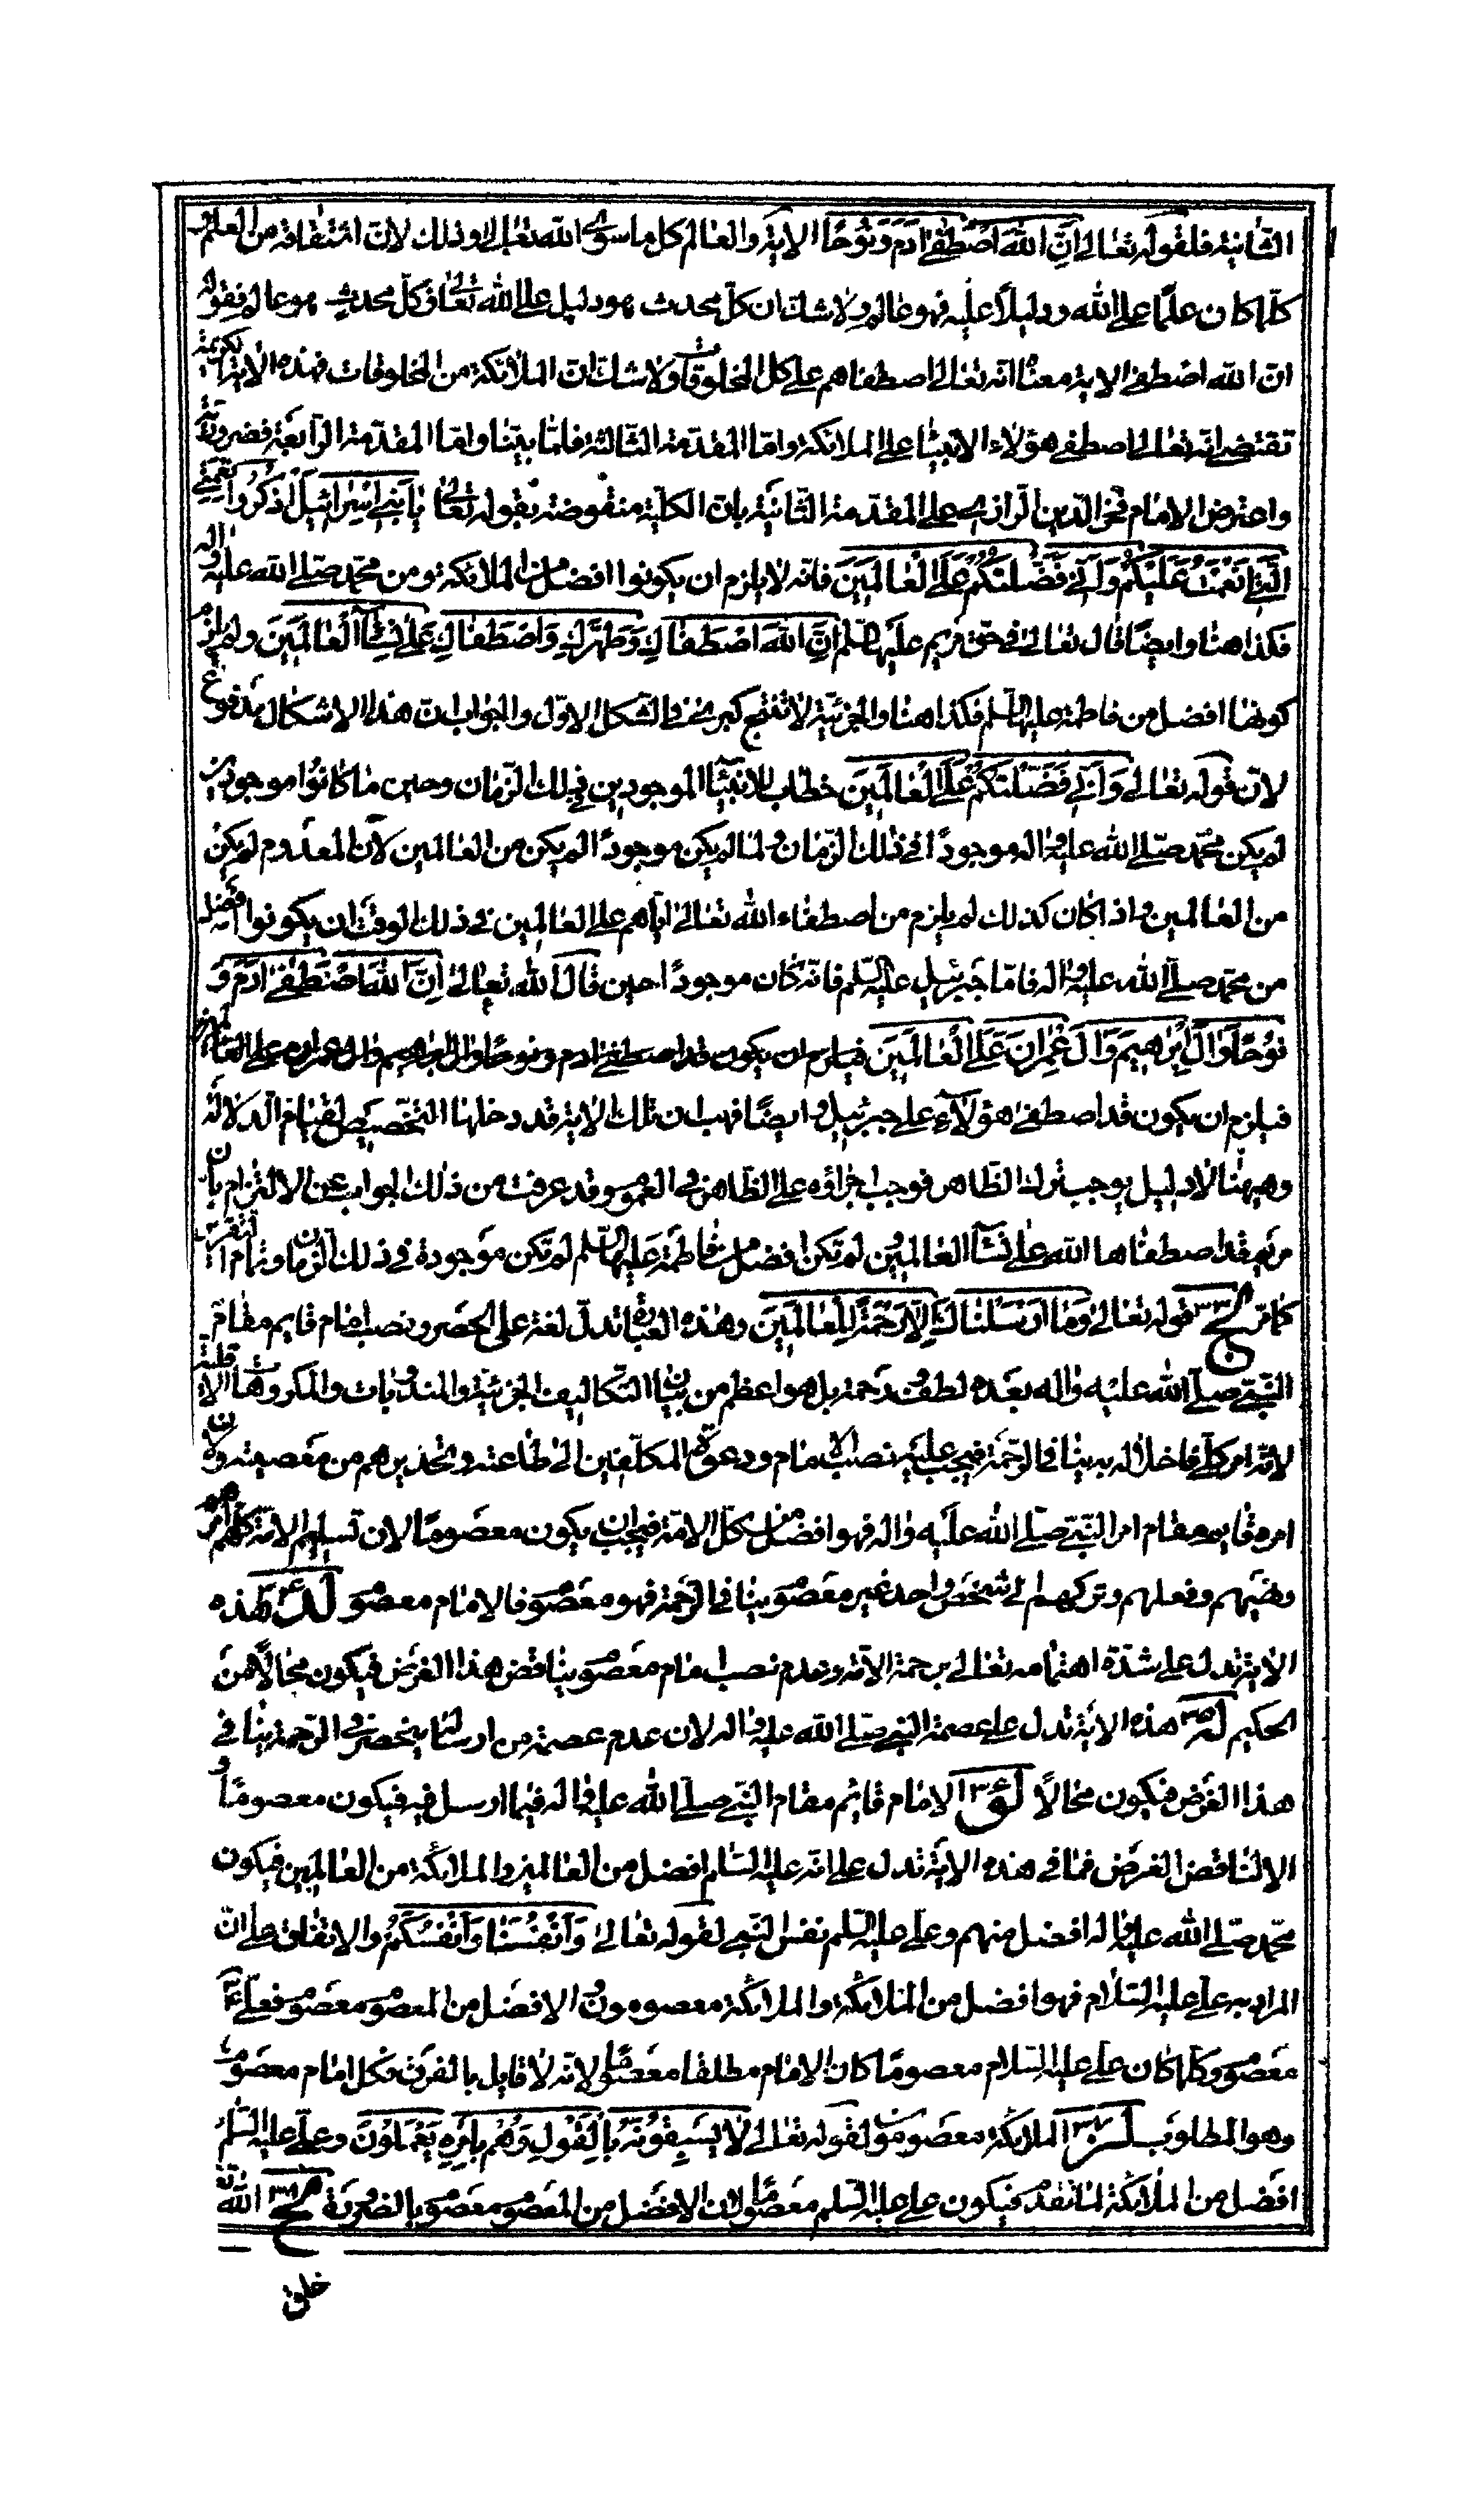 الثانية فلقوله تعالى انّ الله اصطفى ادم ونوحًا الاية والعالم كل ما سوى الله تعالى وذلك لان اشتقاقه من العلم
كلما كان علمًا على الله ودليلًا عليه فهو عالم ولا شك ان كلّ محدث هو دليل على الله تعالى فكلّ محدث هو عالم فقوله
ان الله اصطفى الاية معناه انه تعالى اصطفاهم على كل المخلوقات ولا شك ان الملائكة من المخلوقات فهذه الاية الكريمة
تقتضى انه تعالى اصطفى هؤلاء الانبياء على الملائكة وامّا المقدمة الثالثة فلما بيّنا وامّا المقدمة الرابعة فضرورية
واعترض الامام فخر الدين الرازى على المقدمة الثانية بان الكلية منقوضة بقوله تعالى يا بنى اسرائيل اذكروا نعمتى
التى انعمت عليكم وانّى فضّلتكم على العالمين فانه لا يلزم ان يكونوا افضل من الملائكة ومن محمّد صلى الله عليه واله
فكذا هنا وايضًا قال تعالى فى حق مريم عليها السّلم انّ الله اصطفاك وطهّرك واصطفاك على نساء العالمين ولم يلزم
كونها افضل من فاطمة عليها السّلم فكذا هنا والجزئية لا تنتج كبرى فى الشكل الاوّل والجواب ان هذا الاشكال مدفوع
لان قوله تعالى وانّى فضّلتكم على العالمين خطاب للانبياء الموجودين فى ذلك الزمان وحين ما كانوا موجودين
لم يكن محمّد صلى الله عليه واله موجودًا فى ذلك الزمان ولما لم يكن موجودًا لم يكن من العالمين لان المعدوم لم يكن
من العالمين واذا كان كذلك لم يلزم من اصطفاء الله تعالى ايّاهم على العالمين فى ذلك الوقت ان يكونوا افضل
من محمّد صلى الله عليه واله فامّا جبرئيل عليه السّلم فانّه كان موجودًا حين قال الله تعالى انّ الله اصطفى ادم و
نوحًا وال ابرهيم وال عمران على العالمين فيلزم ان يكون قد اصطفى ادم ونوحًا وال ابراهيم وال عمران على العالمين
فيلزم ان يكون قد اصطفى هؤلاء على جبرئيل وايضًا فهب ان تلك الاية قد دخلها التخصيص لقيام الدلالة
وهيهنا لا دليل يوجب ترك الظاهر فوجب اجراؤه على الظاهر فى العموم وقد عرفت من ذلك الجواب عن الالتزام بان
مريم قد اصطفاها الله على نساء العالمين ولم تكن افضل من فاطمة عليها السّلم لم تكن موجودة فى ذلك الزمان وتمام التقرير
كما مرّ لج ٣٣ قوله تعالى وما ارسلناك الّا رحمة للعالمين وهذه العبارة تدلّ لغة على الحصر ونصب امام قايم مقام
النبىّ صلى الله عليه واله بعده لطف ورحمة بل هو اعظم من بيان التكاليف الجزئية والمندوبات والمكروهات القليلة
لانّه امر كلّى فاخلاله به ينافى الرحمة فيجب عليه نصب الامام ودعوة المكلّفين الى طاعته وتحذيرهم من معصيته وكون
امره قايم مقام امر النبىّ صلى الله عليه واله فهو افضل من كلّ الامّة فيجب ان يكون معصومًا لان تسليم الامّة كلهم امرهم
ونهيهم وفعلهم وتركهم الى شخص واحد غير معصوم ينافى الرحمة فهو معصوم فالامام معصوم لد ٣٤ هذه
الاية تدل على شدّة اهتمامه تعالى برحمة الامّة وعدم نصب امام معصوم يناقض هذا الغرض فيكون محالًا من
الحكيم له ٣٥ هذه الاية تدل على عصمة النبى صلى الله عليه واله لان عدم عصمة من ارساله ينحصر فى الرحمة ينافى
هذا الغرض فيكون محالًا لو ٣٦ الامام قائم مقام النبى صلى الله عليه واله فيما ارسل فيه فيكون معصومًا و
الا لناقض الغرض فما فى هذه الاية تدل على انّه عليه السّلم افضل من العالمين والملائكة من العالمين فيكون
محمّد صلى الله عليه واله افضل منهم وعلى عليه السّلم نفس النبى لقوله تعالى وانفسنا وانفسكم والاتفاق على انّ
المراد به على عليه السّلام فهو افضل من الملائكة والملائكة معصومون والافضل من المعصوم معصوم فعلى
معصوم وكلما كان على عليه السّلام معصومًا كان الامام مطلقا معصومًا لانّه لا قايل بالفرق فكل امام معصوم
وهو المطلوب لز ٣٧ الملائكة معصومون لقوله تعالى لا يسبقونه بالقول وهم بامره يعملون وعلى عليه السّلم
افضل من الملائكة لما تقدم فيكون على عليه السّلم معصومًا لان الافضل من المعصوم معصوم بالضرورة لح ٣٨ انه الله
خلق